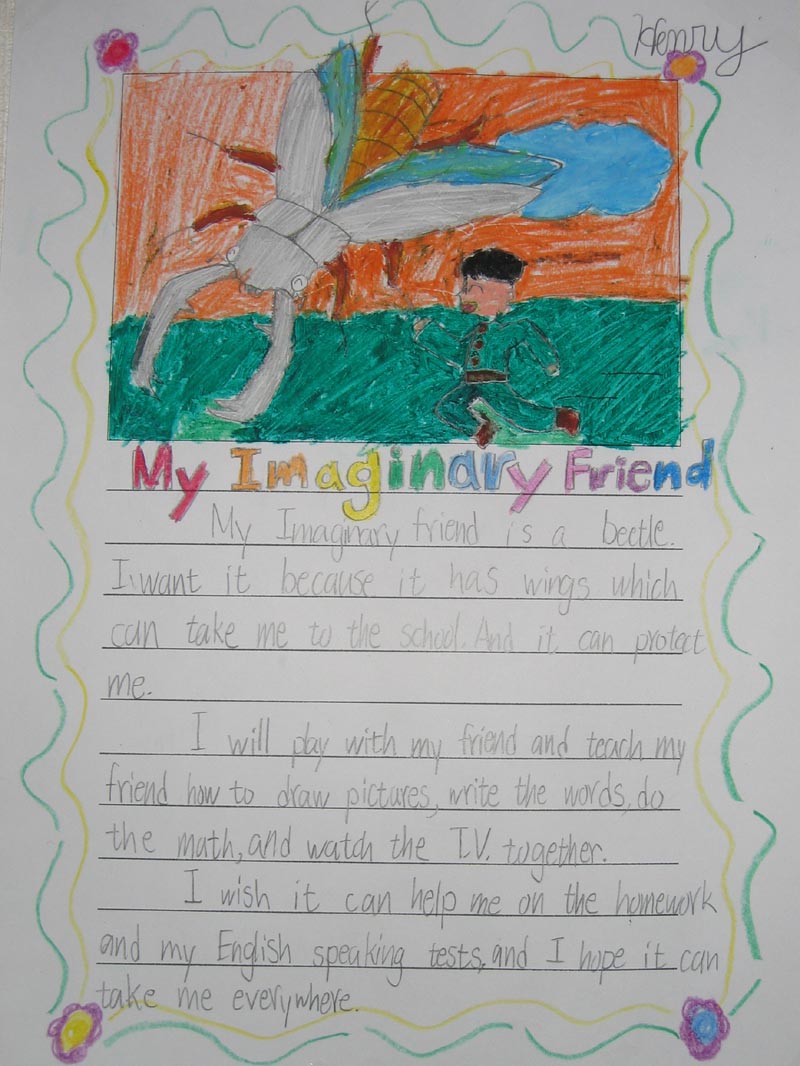 Henry
My Imaginary Friend
My Imaginary friend is a beetle.
I want it because it has wings which
can take me to the school. And it can protect
me.
I will play with my friend and teach my
friend how to draw pictures, write the words, do
the math, and watch the T.V. together.
I wish it can help me on the homework
and my English speaking tests, and I hope it can
take me everywhere.